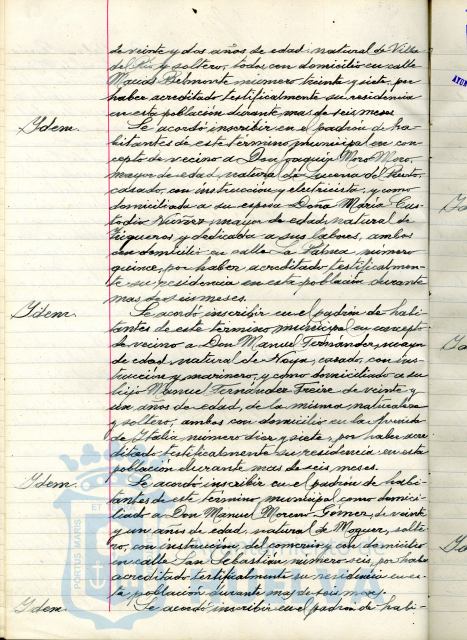 de veinte y dos años de edad, natural de Villa
del Río y soltero, todos con domicilio en calle
Macías Belmonte número treinta y siete, por
haber acreditado testificalmente su residencia
en esta población durante mas de seis meses
Idem. Se acordó inscribir en el padrón de ha-
bitantes de este término municipal en con-
cepto de vecino a Don Joaquín Moro Moro,
mayor de edad, natural de Lucena del Puerto,
casado, con instrucción y electricista, y como
domiciliada a su esposa Doña María Cus-
todio Núñez mayor de edad, natural de
Trigueros y dedicada a sus labores, ambos
con domicilio en calle La Fuente número
quince, por haber acreditado testificalmen-
te su residencia en esta población durante
mas de seis meses.
Idem. Se acordó inscribir en el padrón de habi-
tantes de este término municipal en concepto
de vecino a Don Manuel Fernández, mayor
de edad, natural de Noya, casado, con ins-
trucción y marinero, y como domiciliado a su
hijo Manuel Fernández Freire de veinte y
un años de edad, de la misma naturaleza
y soltero, ambos con domicilio en la Avenida
de Italia, número diez y siete, por haber acre-
ditado testificalmente su residencia en esta
población durante mas de seis meses.
Idem. Se acordó inscribir en el padrón de habi-
tantes de este término municipal como domici-
liado a Don Manuel Moreno Gómez, de veinte
y un años de edad, natural de Moguer, solte-
ro, con instrucción, del comercio, con domicilio
en calle San Sebastián, número seis, por haber
acreditado testificalmente su residencia en es-
ta población durante mas de seis meses.
Idem. Se acordó inscribir en el padrón de habi-
PORTUS MARIS ET